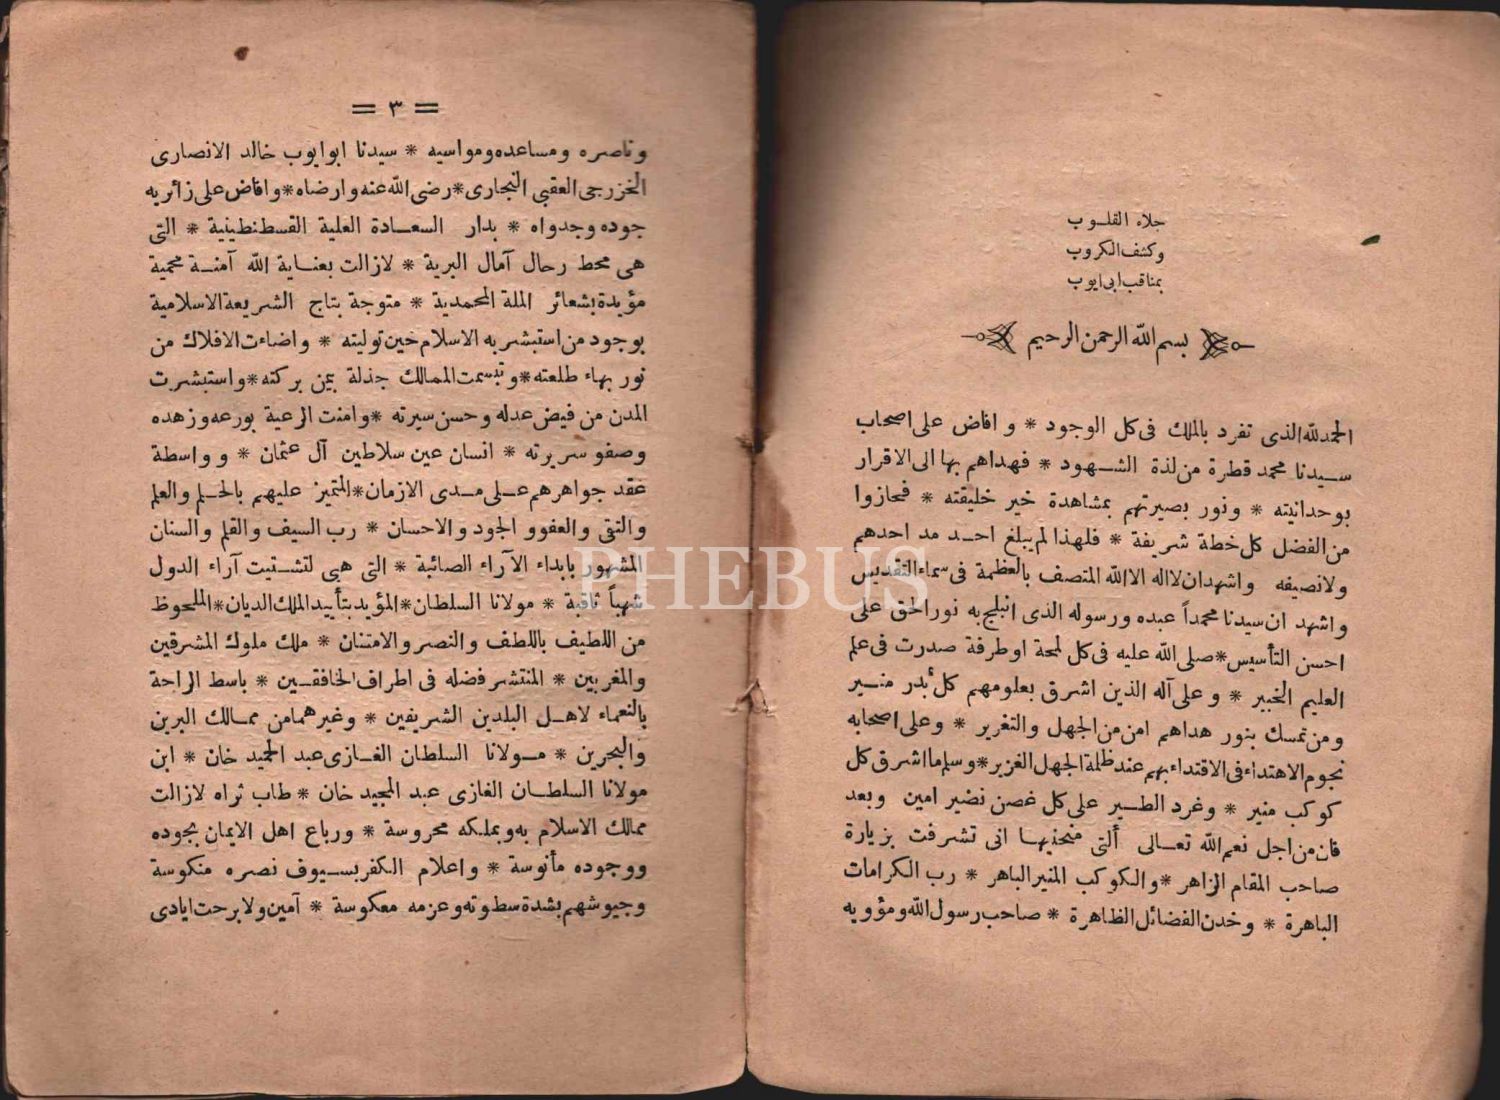 جلاء القلوب
وكشف الكروب
بمناقب ابى ايوب
بسم الله الرحمن الرحيم
الحمد لله الذى تفرد بالملك فى كل الوجود * وافاض على اصحاب
سيدنا محمد قطرة من لذة الشهود * فهداهم بها الى الاقرار
بوحدانيته * ونور بصيرتهم بمشاهدة خير خليقته * فحازوا
من الفضل كل خطة شريفة * فلهذا لم يبلغ احد مد احدهم
ولا نصيفه واشهد ان لا اله الا الله المتصف بالعظمة فى سماء التقديس
واشهد ان سيدنا محمداً عبده ورسوله الذى انبلج به نور الحق على
احسن التأسيس * صلى الله عليه فى كل لمحة او طرفة صدرت فى علم
العليم الخبير * وعلى آله الذين اشرق بعلومهم كل بدر منير
ومن تمسك بنور هداهم امن من الجهل والتغرير * وعلى اصحابه
نجوم الاهتداء فى الاقتداء بهم عند ظلمة الجهل الغزير * وسلم ما اشرق كل
كوكب منير * وغرد الطير على كل غصن نضير امين وبعد
فان من اجل نعم الله تعالى ألتى منحنيها انى تشرفت بزيارة
صاحب المقام الزاهر * والكوكب المنير الباهر * رب الكرامات
الباهرة * وخدن الفضائل الظاهرة * صاحب رسول الله ومؤويه
= ٣ =
وناصره ومساعده ومواسيه * سيدنا ابو ايوب خالد الانصارى
الخزرجى العقبى النجارى * رضى الله عنه وارضاه * وافاض على زائريه
جوده وجدواه * بدار السعادة العلية القسطنطينية * التى
هى محط رحال آمال البرية * لازالت بعناية الله آمنة محمية
مؤيدة بشعائر الملة المحمدية * متوجة بتاج الشريعة الاسلامية
بوجود من استبشر به الاسلام حين توليته * واضاءت الافلاك من
نور بهاء طلعته * وتبسمت الممالك جذلة بيمن بركته * واستبشرت
المدن من فيض عدله وحسن سيرته * وامنت الرعية بورعه وزهده
وصفو سريرته * انسان عين سلاطين آل عثمان * وواسطة
عقد جواهرهم على مدى الازمان * المتميز عليهم بالحلم والعلم
والتقى والعفو والجود والاحسان * رب السيف والقلم والسنان
المشهور بابداء الآراء الصائبة * التى هى لتشتيت آراء الدول
شهباً ثاقبة * مولانا السلطان * المؤيد بتأييد الملك الديان * الملحوظ
من اللطيف باللطف والنصر والامتنان * ملك ملوك المشرقين
والمغربين * المنتشر فضله فى اطراف الخافقين * باسط الراحة
بالنعماء لاهل البلدين الشريفين * وغيرهما من ممالك البرين
والبحرين * مولانا السلطان الغازى عبد الحميد خان * ابن
مولانا السلطان الغازى عبد المجيد خان * طاب ثراه لازالت
ممالك الاسلام به وبملكه محروسة * ورباع اهل الايمان بجوده
ووجوده مأنوسة * واعلام الكفر بسيوف نصره منكوسة
وجيوشهم بشدة سطوته وعزمه معكوسة * آمين ولا برحت ايادى
PHEBUS